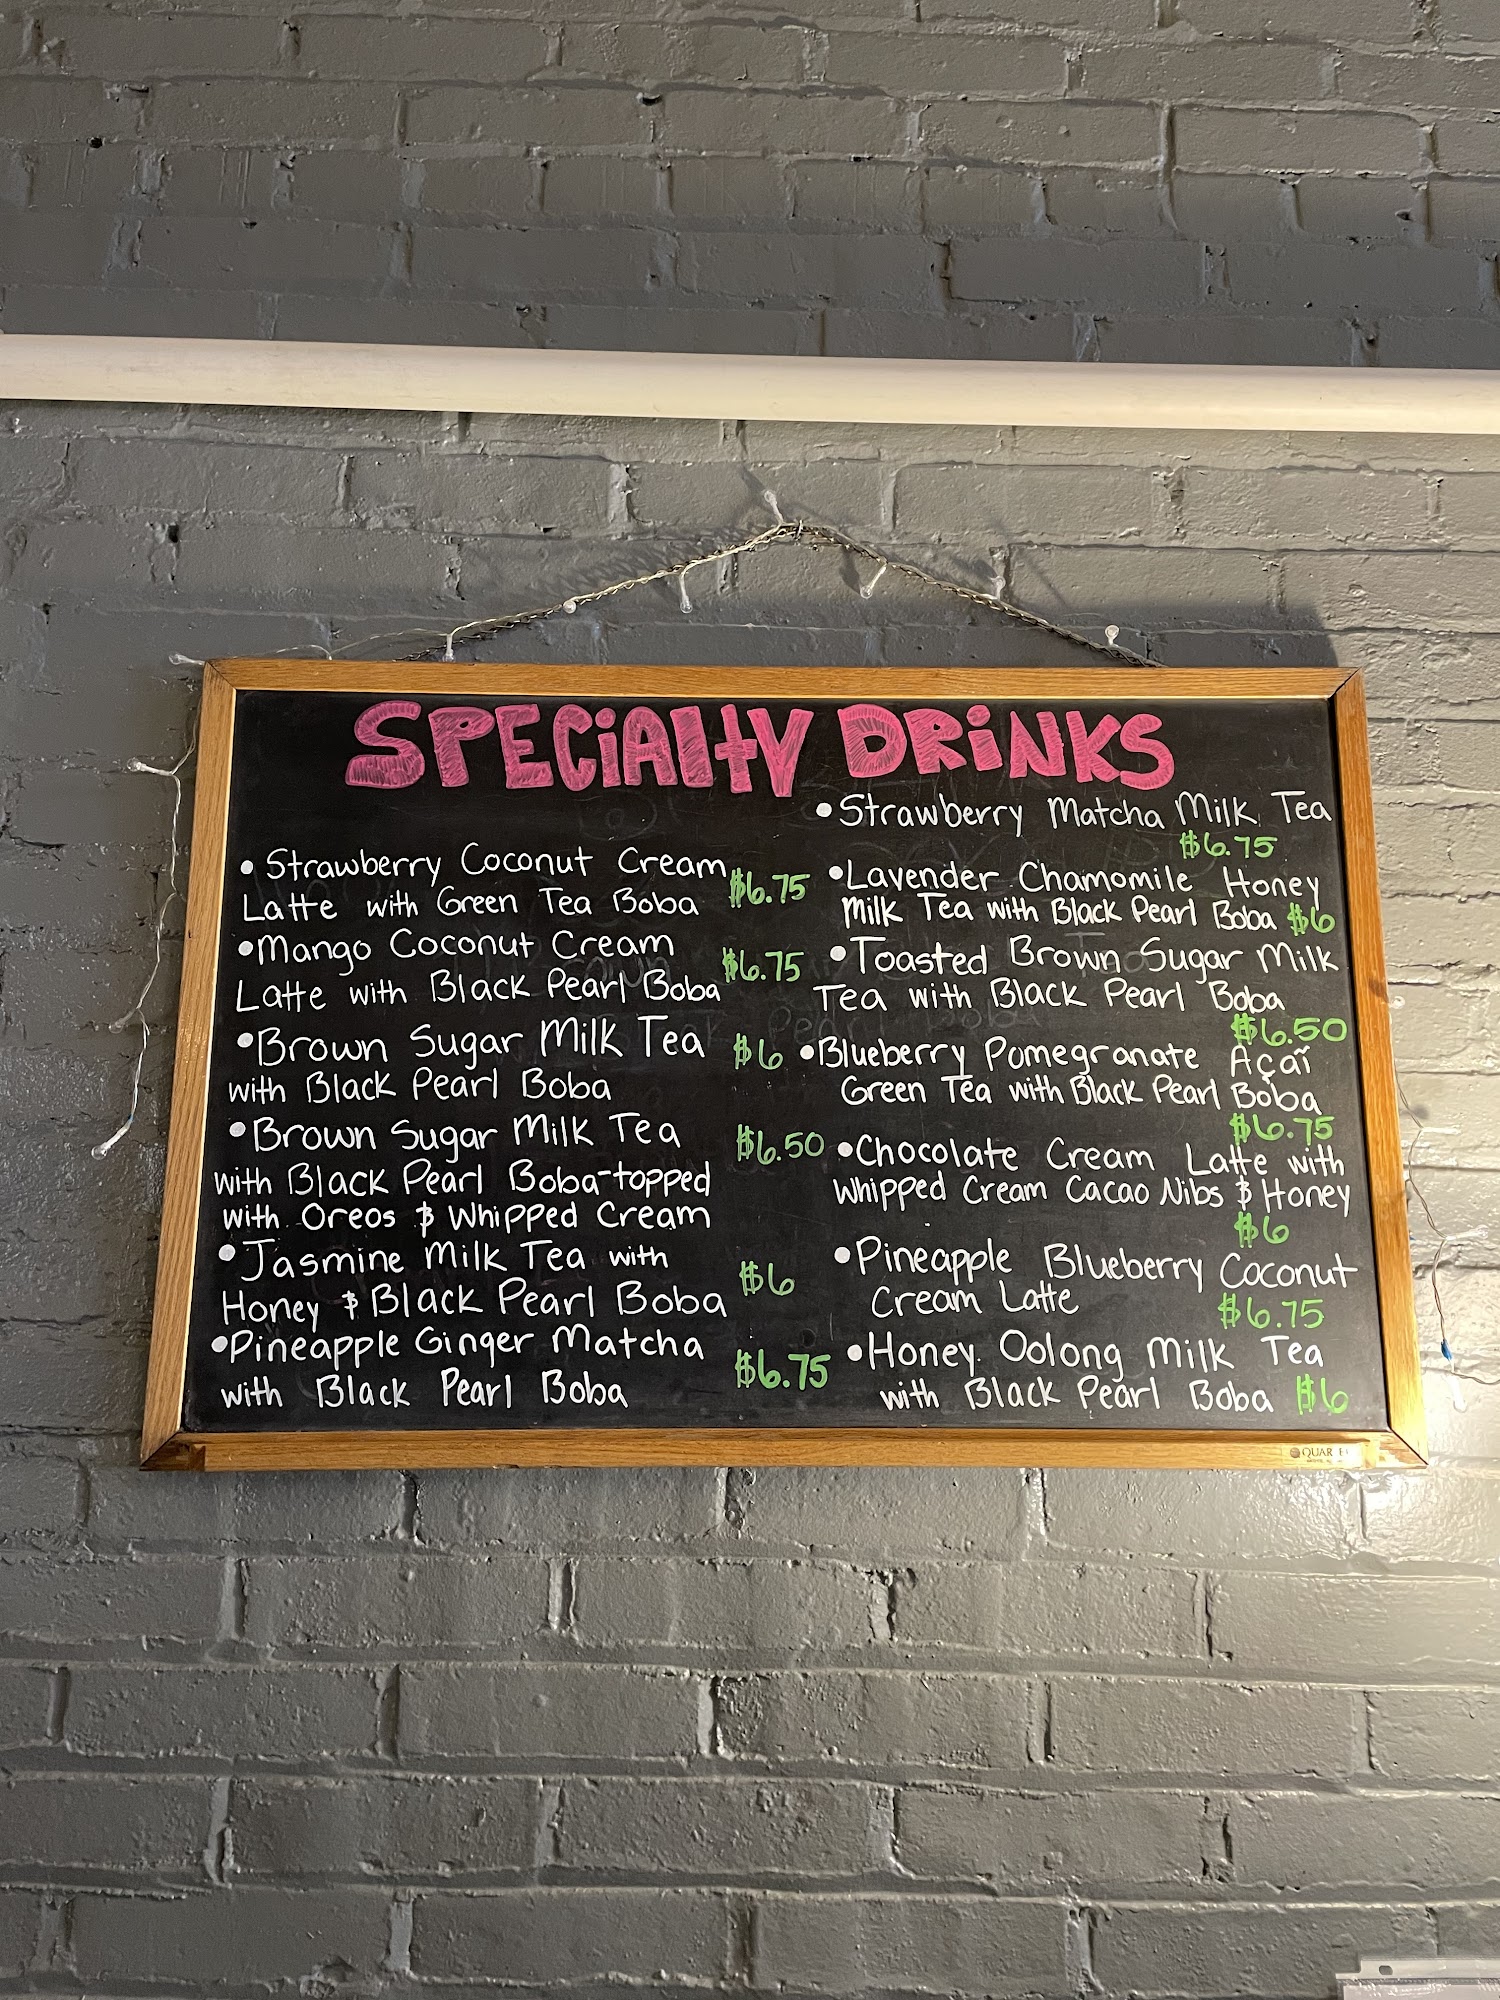 SPECIALTY DRINKS
• Strawberry Coconut Cream
Latte with Green Tea Boba $6.75
• Mango Coconut Cream
Latte with Black Pearl Boba $6.75
• Brown Sugar Milk Tea
with Black Pearl Boba $6
• Brown Sugar Milk Tea $6.50
with Black Pearl Boba-topped
with Oreos & Whipped Cream
• Jasmine Milk Tea with
Honey & Black Pearl Boba $6
• Pineapple Ginger Matcha
with Black Pearl Boba $6.75
• Strawberry Matcha Milk Tea
$6.75
• Lavender Chamomile Honey
Milk Tea with Black Pearl Boba $6
• Toasted Brown Sugar Milk
Tea with Black Pearl Boba
$6.50
• Blueberry Pomegranate Açaí
Green Tea with Black Pearl Boba
$6.75
• Chocolate Cream Latte with
Whipped Cream Cacao Nibs & Honey
$6
• Pineapple Blueberry Coconut
Cream Latte $6.75
• Honey Oolong Milk Tea
with Black Pearl Boba $6